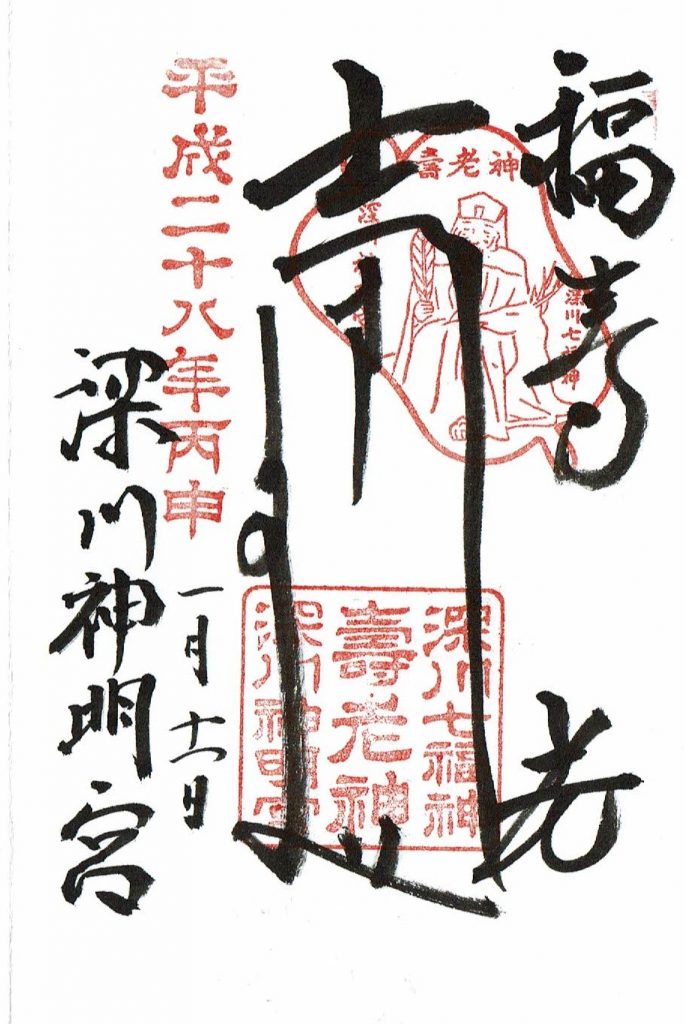 福寿
壽老神
深川七福神
深川七福神
壽老神
深川神明宮
平成二十八年丙申
一月十一日
深川神明宮